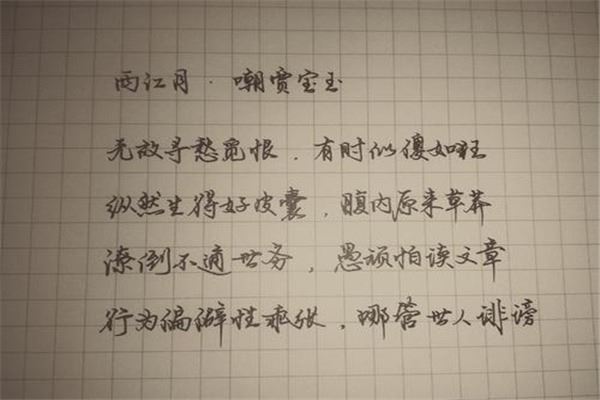 两江月·嘲贾宝玉
无故寻愁觅恨，有时似傻如狂
纵然生得好皮囊，腹内原来草莽
潦倒不通世务，愚顽怕读文章
行为偏僻性乖张，哪管世人诽谤